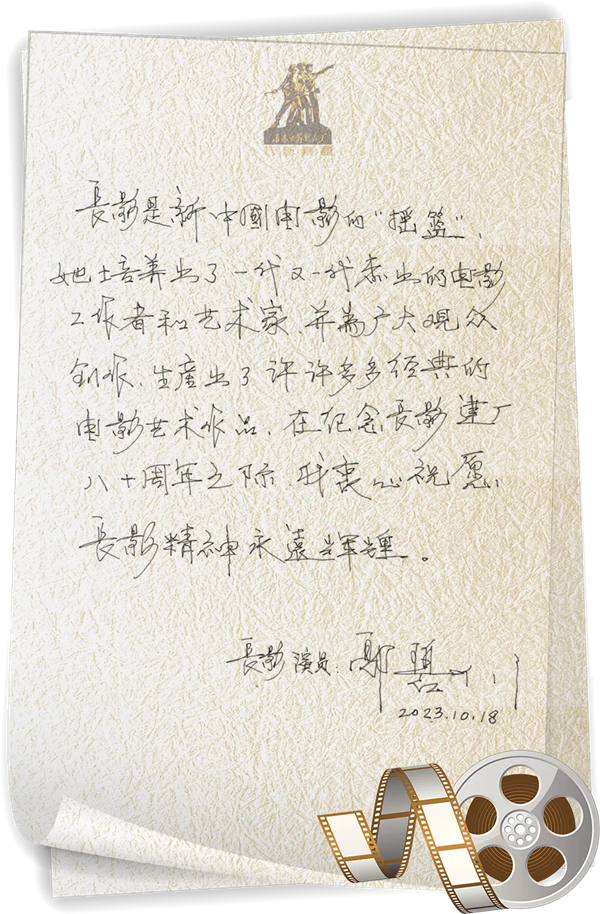 長影是新中國电影的“摇篮”,
她培养出了一代又一代杰出的电影
工作者和艺术家,并为广大观众
创作、生產出了许许多多经典的
电影艺术作品,在纪念長影建厂
八十周年之际,我衷心祝愿,
長影精神永遠辉煌。
長影演员:
2023.10.18